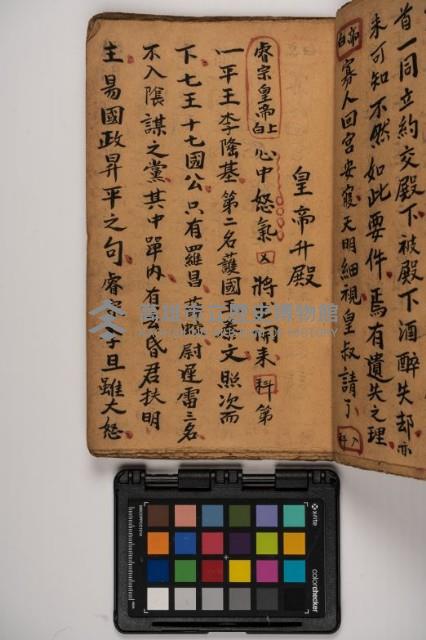 首一同立約交殿下被殿下酒醉失却亦
未可知不然如此要件焉有遺失之理
亦白寡人回宮安寢天明細視皇叔請了入科
皇帝升殿
睿宗皇帝上白心中怒氣又將打開来科第
一平王李隆基第二名護國王秦文照次而
下七王十七國公只有羅昌尉遲雷三名
不入陰謀之黨其中單內有去昏君扶明
主易國政昇平之句睿宗李旦雖大怒
高雄市立歷史博物館
x-rite
colorchecker